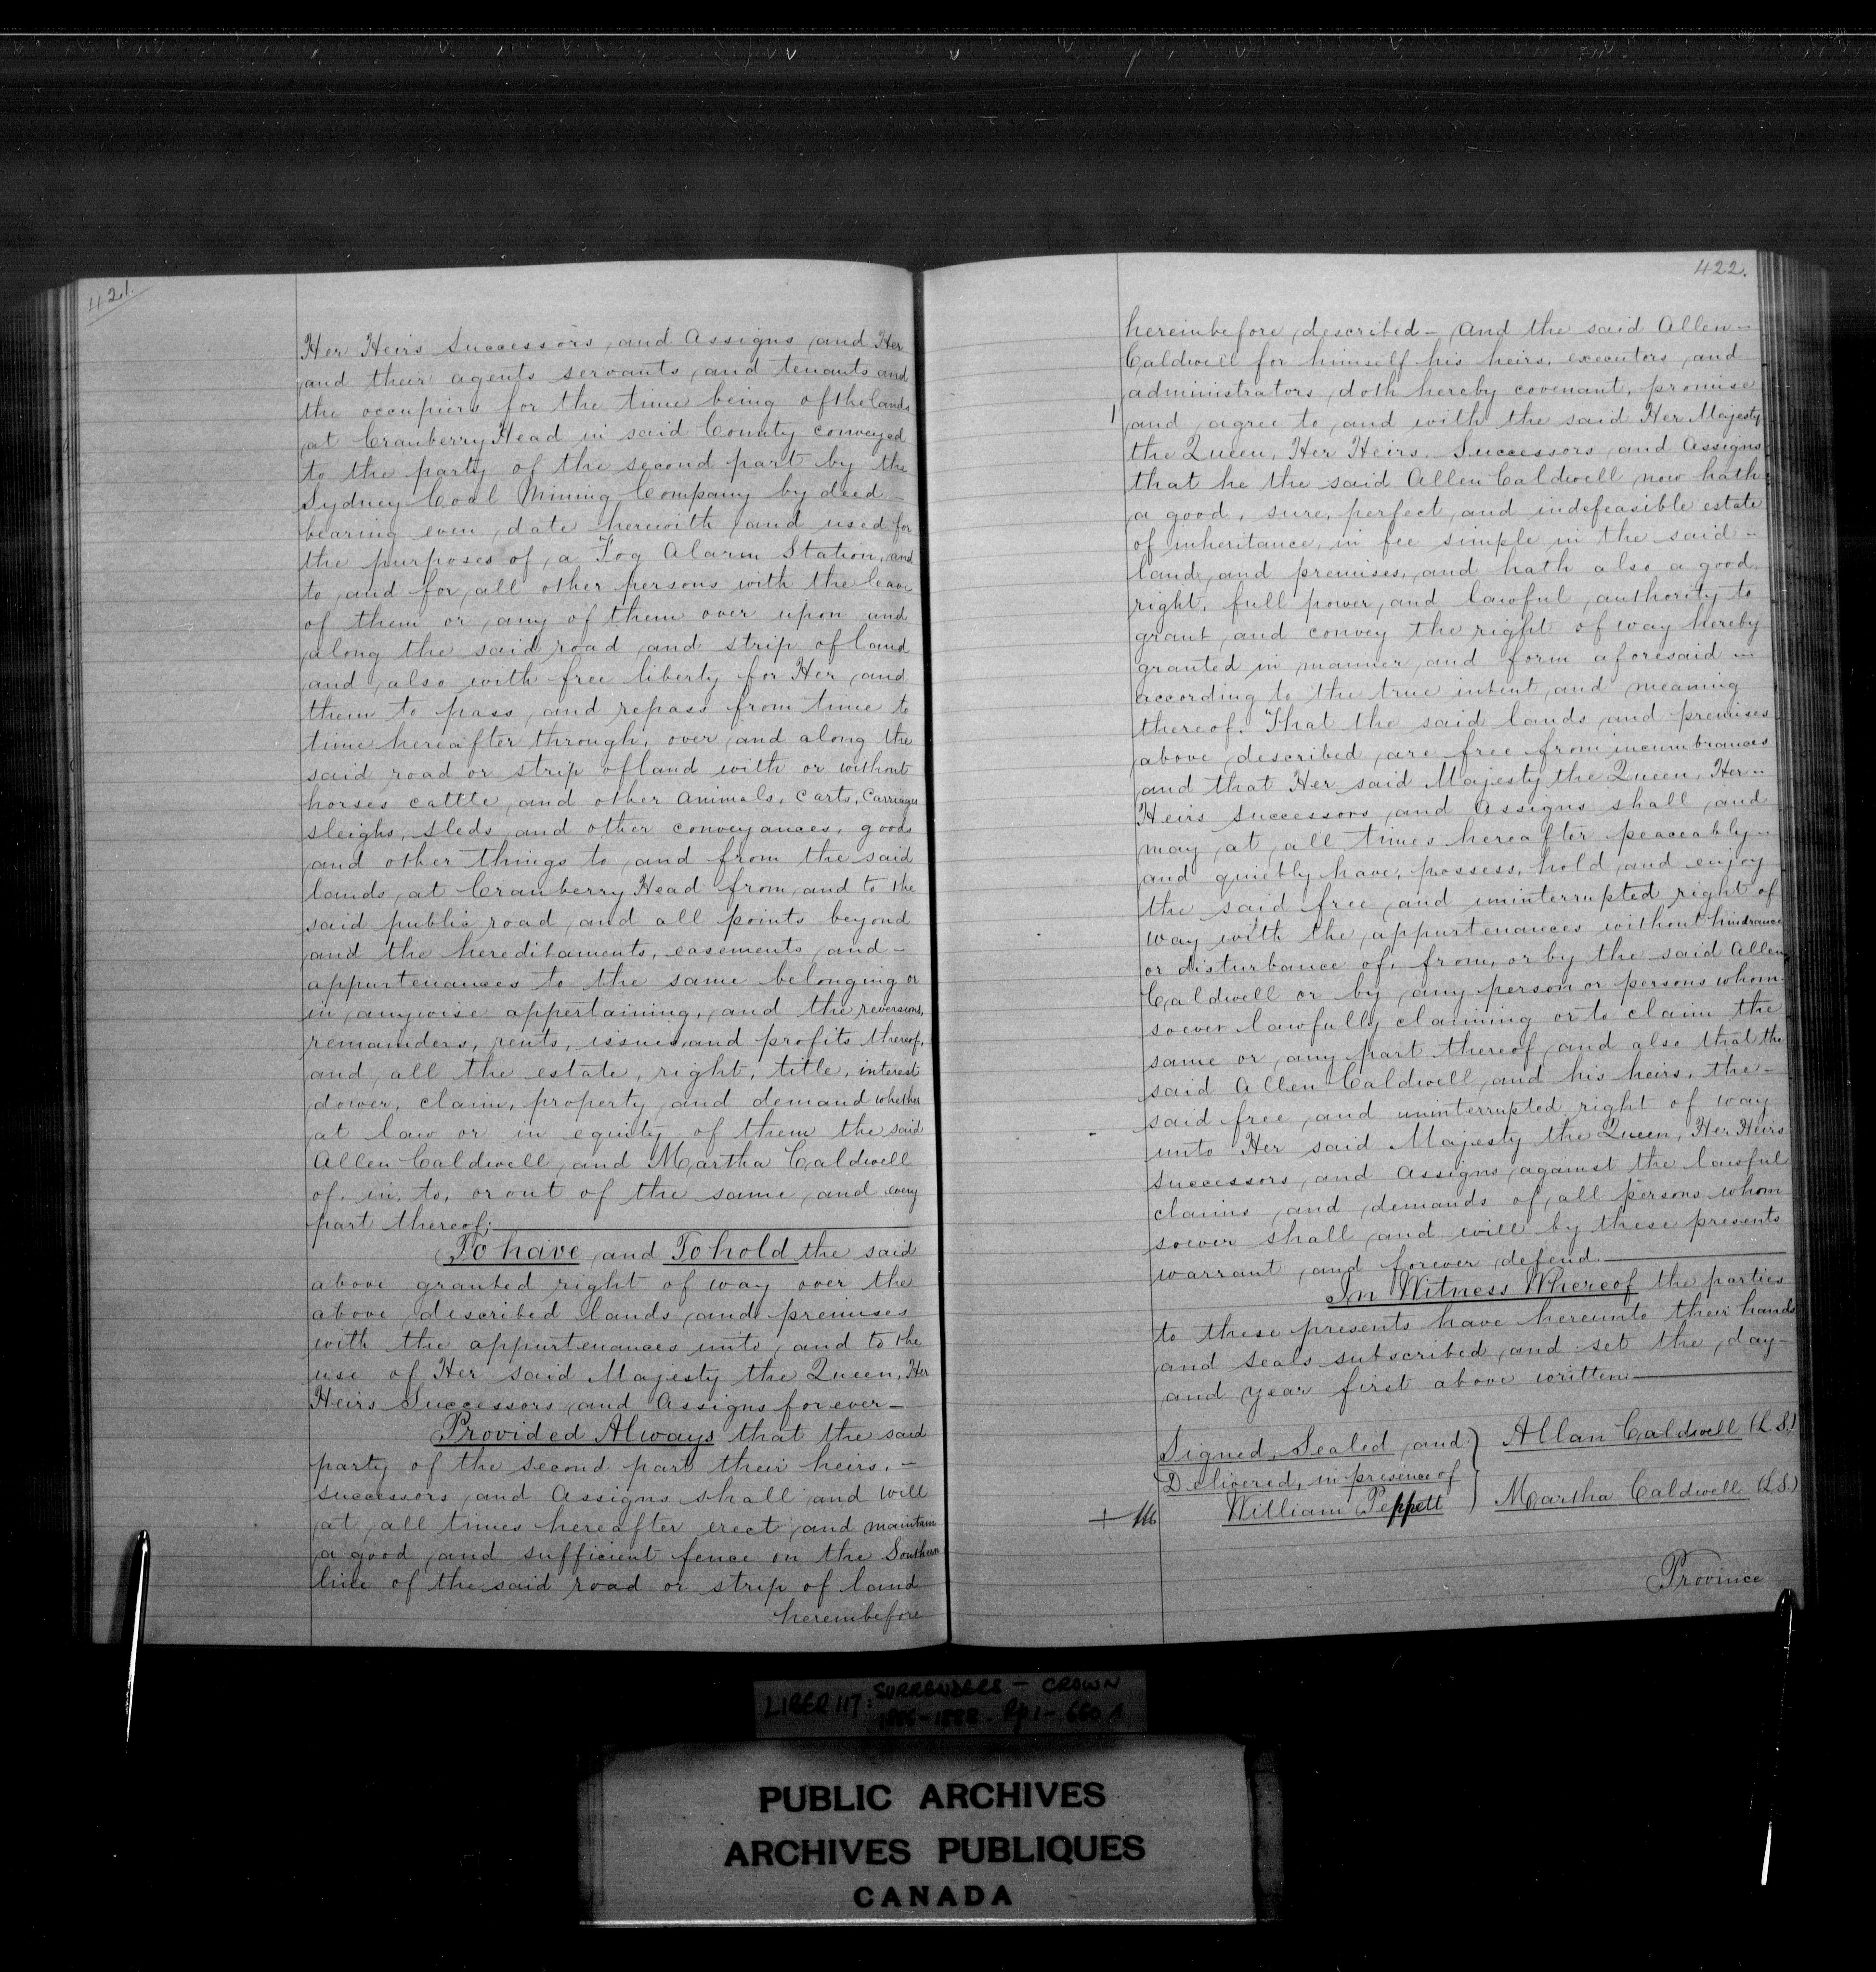 421.
Her Heirs Successors and Assigns and Her
and their agents servants and tenants and
the occupiers for the time being of the lands
at Cranberry Head in said County conveyed
to the party of the second part by the
Sydney Coal Mining Company by deed -
bearing even date herewith and used for
the purposes of a Fog Alarm Station, and
to and for all other persons with the leave
of them or any of them over upon and
along the said road and strip of land
and also with free liberty for Her and
them to pass and repass from time to
time hereafter through, over and along the
said road or strip of land with or without
horses cattle and other animals, carts, carriages
sleighs, sleds and other conveyances, goods
and other things to and from the said
lands at Cranberry Head from and to the
said public road and all points beyond
and the hereditaments, easements and -
appurtenances to the same belonging or
in anywise appertaining, and the reversions,
remainders, rents, issues and profits thereof,
and all the estate, right, title, interest
dower, claim, property and demand whether
at law or in equity of them the said
Allen Caldwell and Martha Caldwell
of, in, to, or out of the same and every
part thereof;
To have and To hold the said
above granted right of way over the
above described lands and premises
with the appurtenances unto and to the
use of Her said Majesty the Queen, Her
Heirs Successors and Assigns for ever -
Provided Always that the said
party of the second part their heirs, -
successors and Assigns shall and will
at all times hereafter erect and maintain
a good and sufficient fence on the Southern
line of the said road or strip of land
hereinbefore
422.
hereinbefore described - And the said Allen -
Caldwell for himself his heirs, executors and
administrators doth hereby covenant, promise
and agree to and with the said Her Majesty
the Queen, Her Heirs, Successors and Assigns
that he the said Allen Caldwell now hath
a good, sure, perfect and indefeasible estate
of inheritance in fee simple in the said -
land and premises, and hath also a good
right, full power and lawful authority to
grant and convey the right of way hereby
granted in manner and form aforesaid -
according to the true intent and meaning
thereof. That the said lands and premises
above described are free from incumbrances
and that Her said Majesty the Queen, Her -
Heirs Successors and Assigns shall and
may at all times hereafter peaceably -
and quietly have, possess, hold and enjoy
the said free and uninterrupted right of
way with the appurtenances without hindrance
or disturbance of, from, or by the said Allen
Caldwell or by any person or persons whom
soever lawfully claiming or to claim the
same or any part thereof and also that the
said Allen Caldwell and his heirs, the -
said free and uninterrupted right of way
unto Her said Majesty the Queen, Her Heirs
Successors and Assigns against the lawful
claims and demands of all persons whom
soever shall and will by these presents
warrant and forever defend.
In Witness Whereof the parties
to these presents have hereunto their hands
and seals subscribed and set the day -
and year first above written
Signed, Sealed and } Allan Caldwell (L.S.)
Delivered, in presence of
William Peppett } Martha Caldwell (L.S.)
Province
LIBER 117: SURRENDERS - CROWN
1886-1888. Pp 1-660 A
PUBLIC ARCHIVES
ARCHIVES PUBLIQUES
CANADA